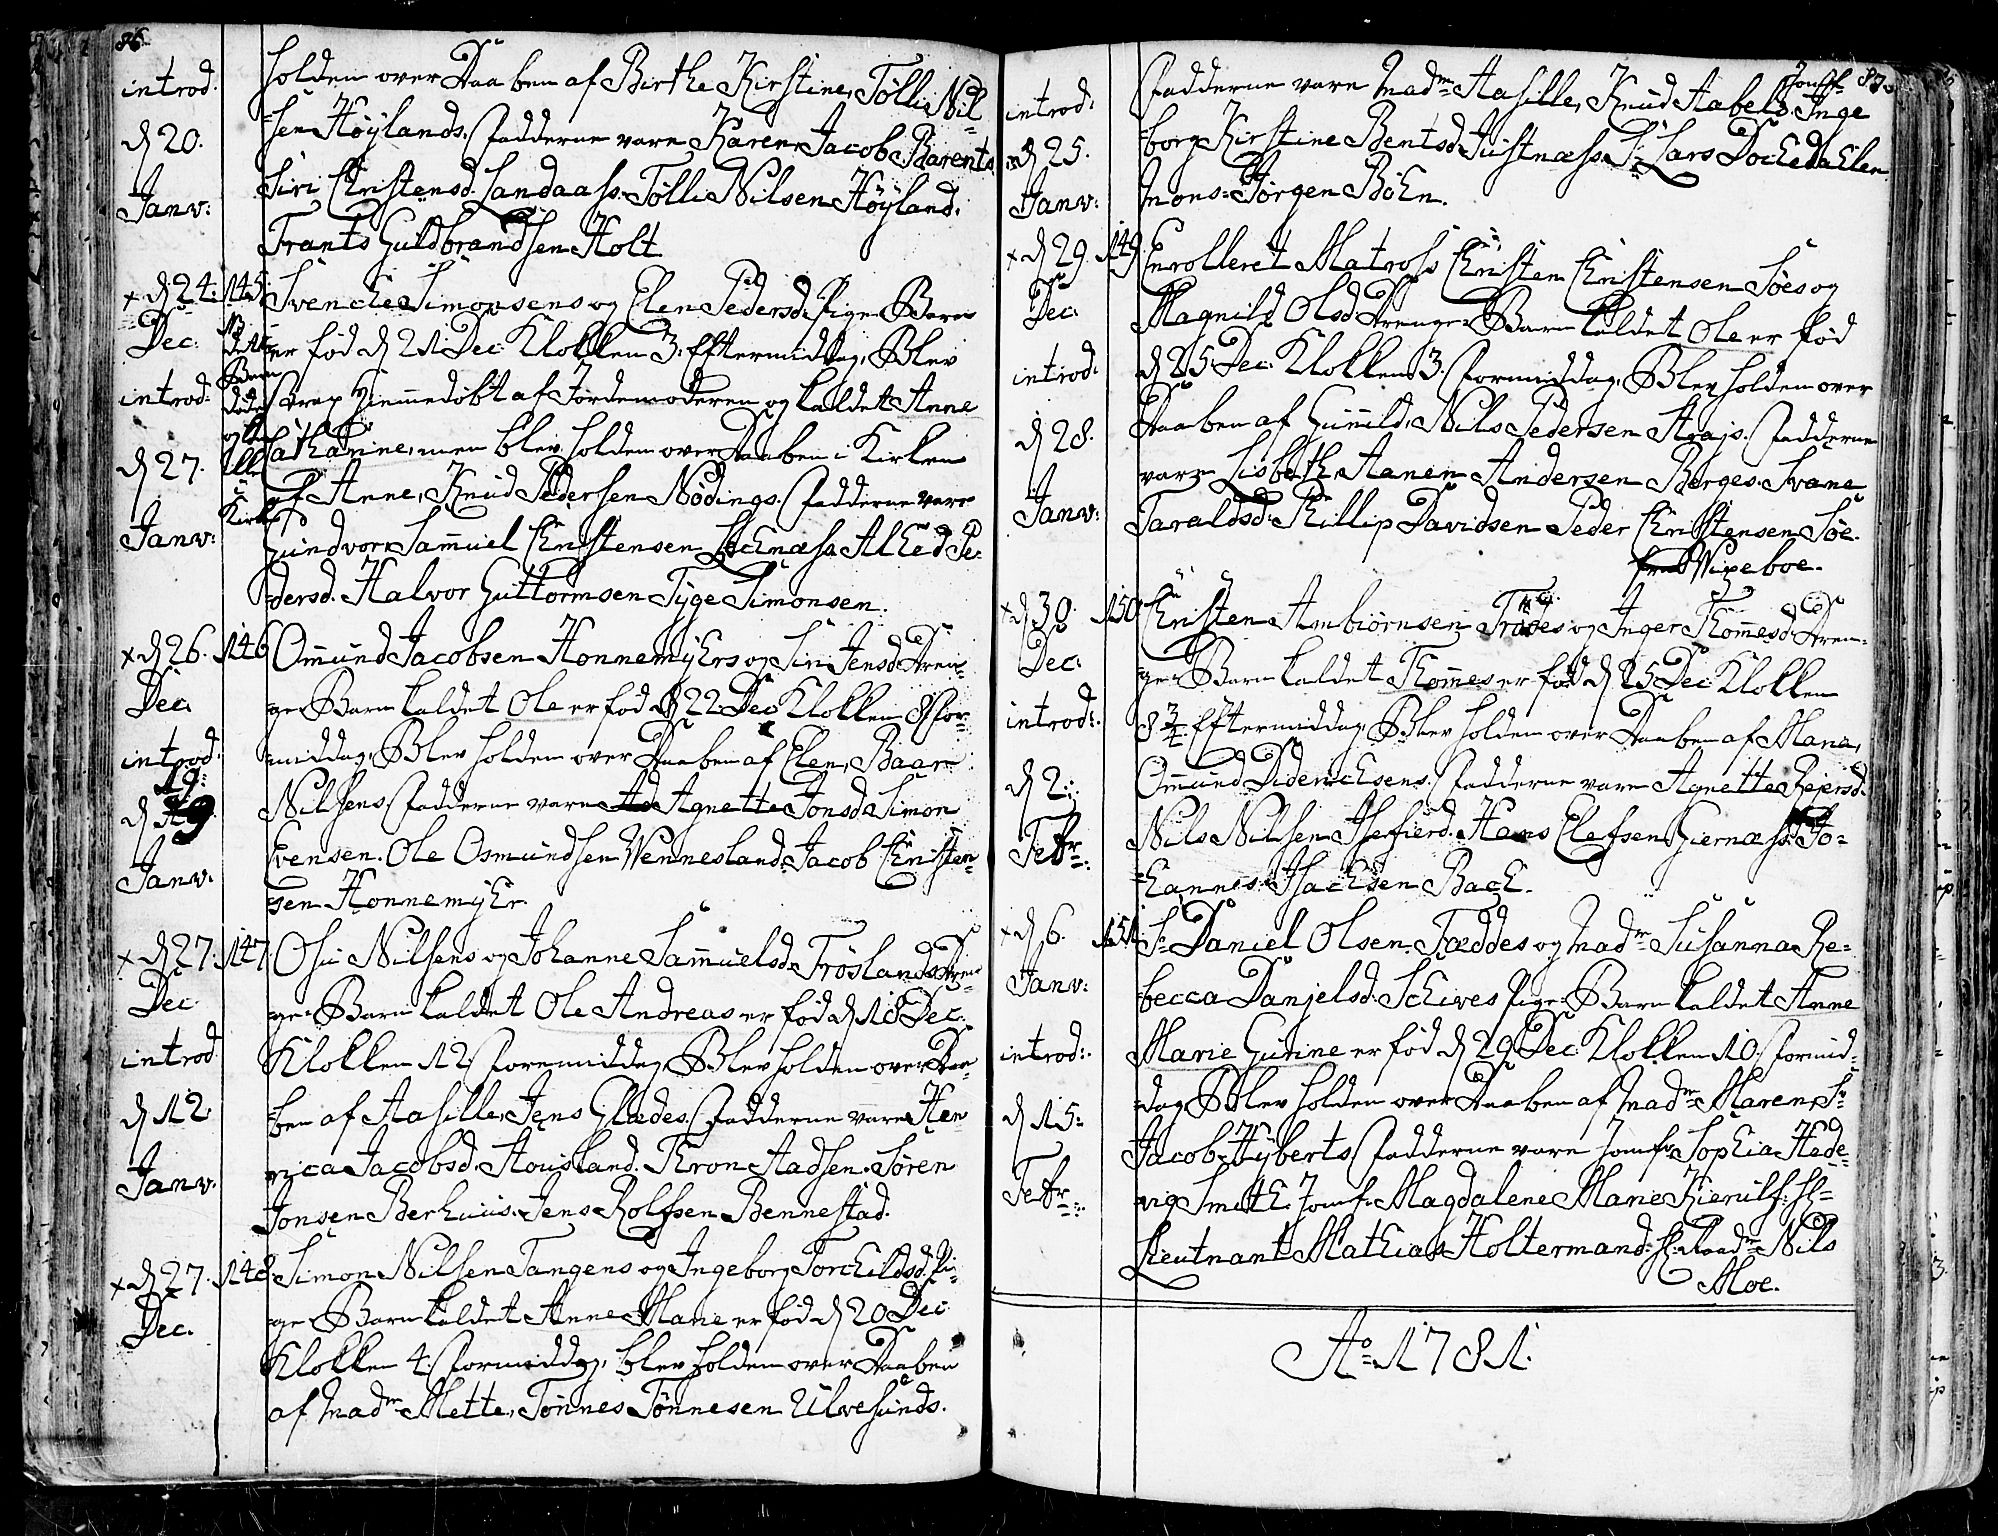 86
introd:
d 20.
Janv:
holden over Daaben af Birthe Kirstine, Tølli Nil=
=sen Høylands. Fadderne vare Karen, Jacob Barents
Siri Christensd. Landaass. Tølli Nilsen Høyland.
Frants Guldbrandsen Holt
x d 24. 145.
Dec:
introd:
d 27.
Janv:
NB dette Barn døde
i Kirk
Svenche Simonsens og Elen Pedersd. Pige-Barn
er fød d 21 Dec: Klokken 3. Eftermiddag, Blev
strax Hiemmedøbt af Jordemoderen og kaldet Anne
Cathanine, men blev holden over Daaben i Kirken
af Anne, Knud Pedersen Nødings. Fadderne vare
Gundvor, Samuel Christensen Alhed Pe=
=dersd. Halvor Guttormsen Tyge Simonsen.
x d 26. 146
Dec:
introd:
d 19
Janv:
Omund Jacobsen Honnemyhrs og Siri Jensd. Dren=
ge-Barn kaldet Ole er fød d 22 Dec Klokken 8 For=
=middag, Blev holden over Daaben af Elen, Baar
Nilsens. Fadderne vare Agnette Jonsd. Simon
Evensen. Ole Osmundsen Wennesland. Jacob Christen=
=sen Honnemyhr.
x d 27. 147.
Dec
introd
d 12
Janv:
Osmi Nilsens og Johanne Samuelsd. Trøslands Dren=
ge-Barn kaldet Ole Andreas er fød d 18 Dec.
Klokken 12. Formiddag, Blev holden over Daa=
=ben af Aasille, Jens Glædes. Fadderne vare Hen=
rica Jacobsd. Aousland. Thron Aadsen. Søren
Jonsen Berhuus. Jens Rolfsen Bennestad.
x d 27. 148
Dec.
Simon Nilsen Tangens og Ingeborg Torchildsd. Pi=
ge-Barn kaldet Anne Marie er fød d 20 Dec
Klokken 4. Formiddag, blev holden over Daaben
af Madm Mette, Tønnes Tønnesen Ulvesunds.
87.
introd:
d 25.
Janv:
Fadderne vare Madm Aasille, Knud Aabels. Jomf: Inge
=borg Kirstine Bentsd. Justnæss. Sr Lars Elen
Mons: Jørgen Böhn.
x d 29. 149.
Dec:
introd:
d 28.
Janv:
Enrolleret Matross Christen Christensen Søes og
Magnild Olsd. Drenge-Barn kaldet Ole er fød
d 25 Dec: Klokken 3. Formiddag, Blev holden over
Daaben af Gunild, Nils Pedersen Strajs. Fadderne
vare Lisbeth, Aanen Andersen Berges. Svane
Taraldsd. Phillip Davidsen Peder Christensen Søe.
Wigeboe.
x d 30. 150
Dec:
introd:
d 2.
Febr:
Christen Ambiörnsen Trödes og Inger Thommesd. Dren=
ge-Barn kaldet Thommes er fød d 25 Dec Klokken
8 3/4 Eftermiddag, Blev holden over Daaben af Maria,
Omund Diderichsens. Fadderne vare Agnette Rejersd.
Nils Nilsen Aasefierd. Hans Elefsen Giernæss. Jo=
=hannes Isachsen Bach.
x d 6. 151
Janv:
introd:
d 15.
Febr:
Sr Daniel Olsen Fæddes og Madm Susanna Re=
=becca Danjelsd. Schives Pige-Barn kaldet Anne
Marie Gurine er fød d 29 Dec Klokken 10. Formid=
=dag, Blev holden over Daaben af Madm Maren, Sr
Jacob Hyberts. Fadderne vare Jomfr Sophia Hede=
vig Smith. Jomf. Magdalene Marie Kierulf. Hr
Lieutnant Mathias Holtermand. Nils
Moe.
Ao 1781.